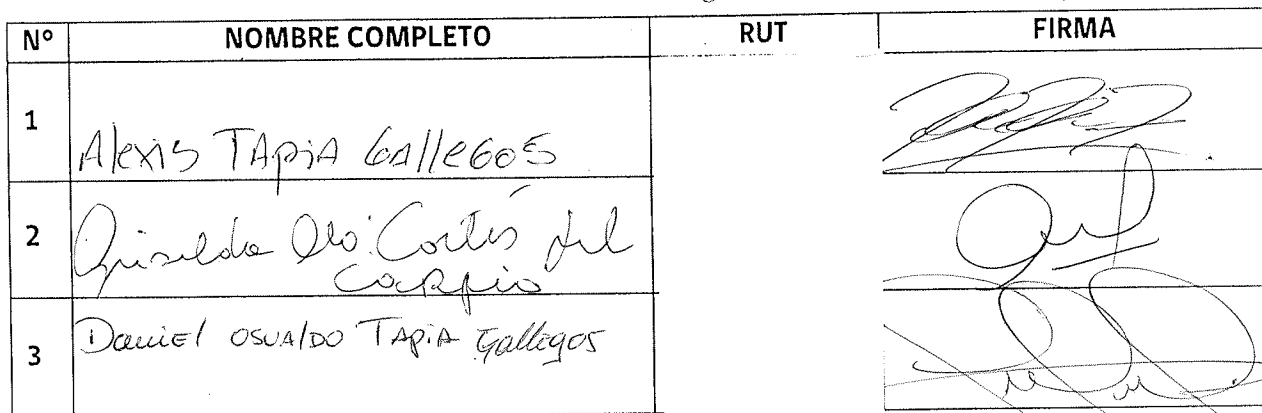 Nº NOMBRE COMPLETO RUT FIRMA
1 Alexis TApiA GAllEGOS
2 Griselda Cortés del
Carpio
3 Daniel OSVAlDO TApiA Gallegos